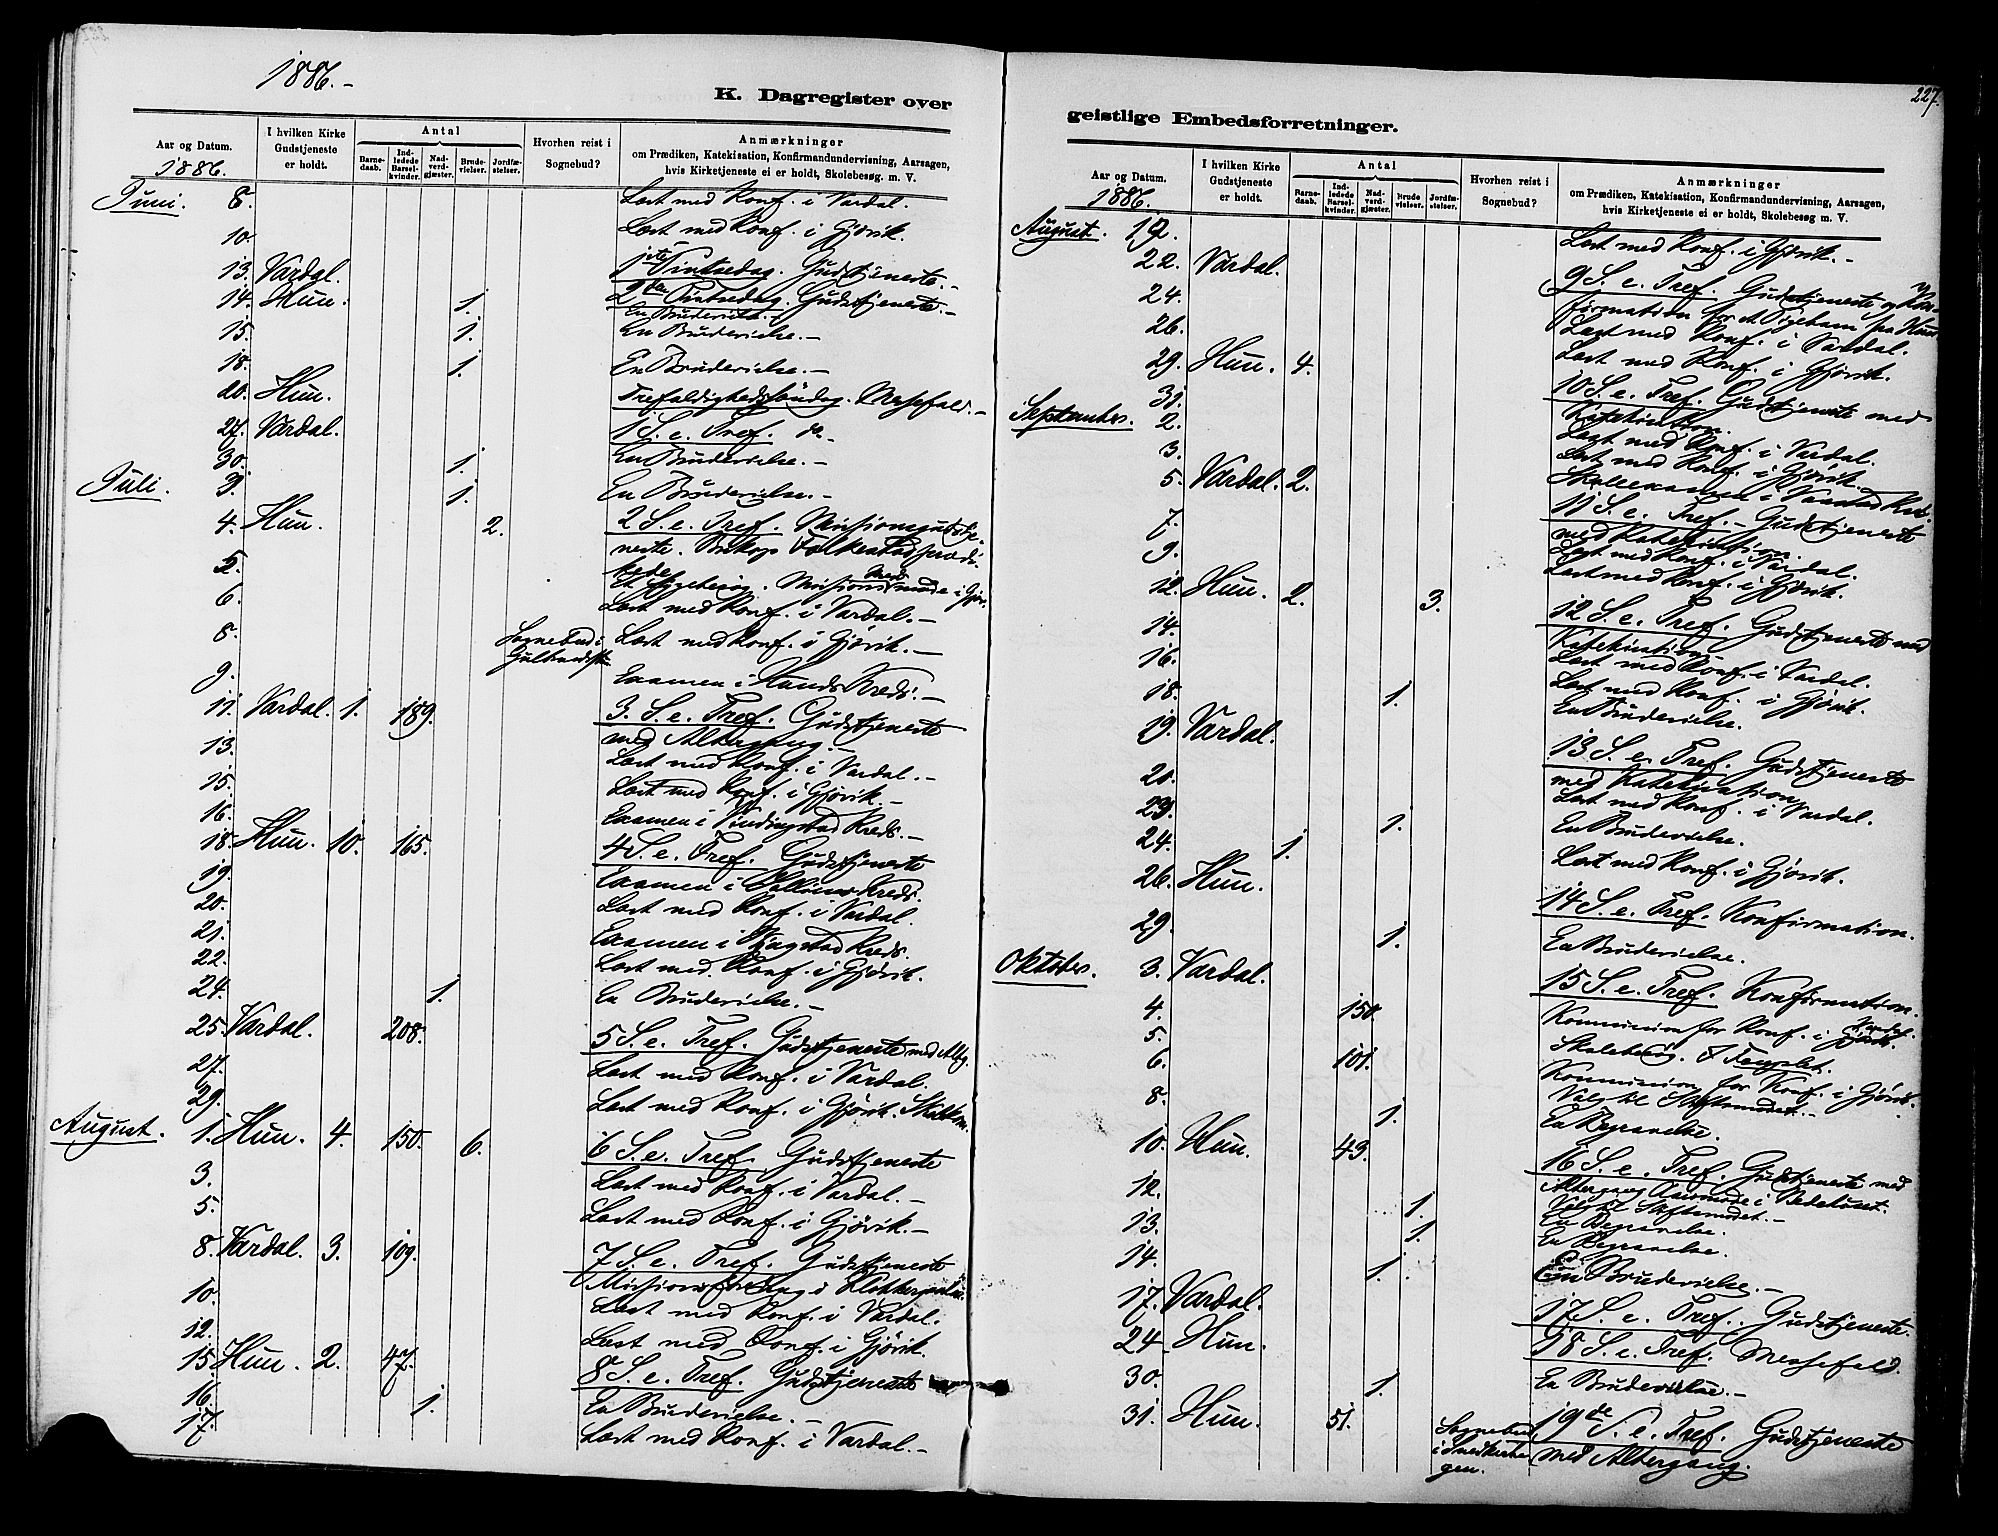 1886.-
K. Dagregister over
Aar og Datum.
1886.
I hvilken Kirke Gudstjeneste er holdt.
Antal
Barnedaab.
Indledede Barselkvinder.
Nadverdgjæster.
Brudevielser.
Jordfæstelser.
Hvorhen reist i Sognebud?
Anmærkninger
om Prædiken, Katekisation, Konfirmandundervisning, Aarsagen,
hvis Kirketjeneste ei er holdt, Skolebesøg m. V.
Juni. 8. Læst med Konf. i Vardal.
10. Læst med Konf. i Gjövik.
13. Vardal. 1ste Pintsedag. Gudstjeneste.-
14. Hun. 1. 2den Pintsedag. Gudstjeneste.-
En Brudevielse.-
15. 1. En Brudevielse.-
18. 1. En Brudevielse.-
20. Hun. Trefoldighedssöndag. Messefald.-
27. Vardal. 1 S. e. Tref. do.-
30. 1. En Brudevielse.-
Juli. 3. 1. En Brudevielse.-
4. Hun. 2. 2 S. e. Tref. Missionsgudstje-
neste. Biskop Folkestad prædi-
kede.
5. Missionsmöde i Gjöv.
6. Læst med Konf. i Vardal.-
8. Sognebud i Læst med Konf. i Gjövik.-
9. Examen i Kreds.-
11. Vardal. 1. 189. 3. S. e. Tref. Gudstjeneste
med Altergang.-
13. Læst med Konf. i Vardal.-
15. Læst med Konf. i Gjövik.-
16. Examen i Vindingstad Kreds.-
18. Hun. 10. 165. 4 S. e. Tref. Gudstjeneste
19. Examen i Kreds.
20. Læst med Konf. i Vardal.
21. Examen i Kreds.
22. Læst med Konf. i Gjövik.
24. 1. En Brudevielse.-
25. Vardal. 208. 5 S. e. Tref. Gudstjeneste med Altg.
27. Læst med Konf. i Vardal.
29. Læst med Konf. i Gjövik.
August. 1. Hun. 4. 150. 6. 6 S. e. Tref. Gudstjeneste
3. Læst med Konf. i Vardal.-
5. Læst med Konf. i Gjövik.-
8. Vardal. 3. 109. 7 S. e. Tref. Gudstjeneste
10. Læst med Konf. i Vardal.
12. Læst med Konf. i Gjövik.
15. Hun. 2. 47. 8 S. e. Tref. Gudstjeneste
16. 1. En Brudevielse.-
17. Læst med Konf. i Vardal.-
227.
geistlige Embedsforretninger.
Aar og Datum.
1886.
I hvilken Kirke Gudstjeneste er holdt.
Antal
Barnedaab.
Indledede Barselkvinder.
Nadverdgjæster.
Brudevielser.
Jordfæstelser.
Hvorhen reist i Sognebud?
Anmærkninger
om Prædiken, Katekisation, Konfirmandundervisning, Aarsagen,
hvis Kirketjeneste ei er holdt, Skolebesøg m. V.
August. 19. Læst med Konf. i Gjövik.-
22. Vardal. 9 S. e. Tref. Gudstjeneste og Kon-
firmation for et Pigebarn paa Hun
24. Læst med Konf. i Vardal.
26. Læst med Konf. i Gjövik.
29. Hun. 4. 10 S. e. Tref. Gudstjeneste med
Katekisation.
31. Læst med Konf. i Vardal.
September. 2. Læst med Konf. i Gjövik.-
3. Skoleexamen i Kreds.
5. Vardal. 2. 11 S. e. Tref.- Gudstjeneste
med Katekisation.
7. Læst med Konf. i Vardal.
9. Læst med Konf. i Gjövik.
12. Hun. 2. 3. 12 S. e. Tref. Gudstjeneste med
Katekisation.-
14. Læst med Konf. i Vardal.
16. Læst med Konf. i Gjövik.
18. 1. En Brudevielse.
19. Vardal. 13 S. e. Tref. Gudstjeneste
med Katekisation
Læst med Konf. i Vardal.
23. 1. En Brudevielse.
24. 1. Læst med Konf. i Gjövik.
26. Hun. 14 S. e. Tref. Konfirmation.
29. 1. En Brudevielse.
Oktober. 3. Vardal. 15 S. e. Tref. Konfirmation.
4. 150. Kommunion for Konf. i Vardal.
5. Skolebesög.
6. 101. Kommunion for Konf. i Gjövik.
Valg til Stiftsmödet.-
8. 1. En Begravelse.
10. Hun. 43. 16 S. e. Tref. Gudstjeneste med
Altergang. i Bedehuset.
12. 1. Valg til Stiftsmödet.-
En Begravelse.
13. 1. En Begravelse.
14. 1. En Brudevielse.-
17. Vardal. 17 S. e. Tref. Gudstjeneste.
24. Hun. 18 S. e. Tref. Messefald.
30. 1. En Brudevielse.-
31. Hun. 51. Sognebud 19de S. e. Tref. Gudstjeneste
med Altergang.